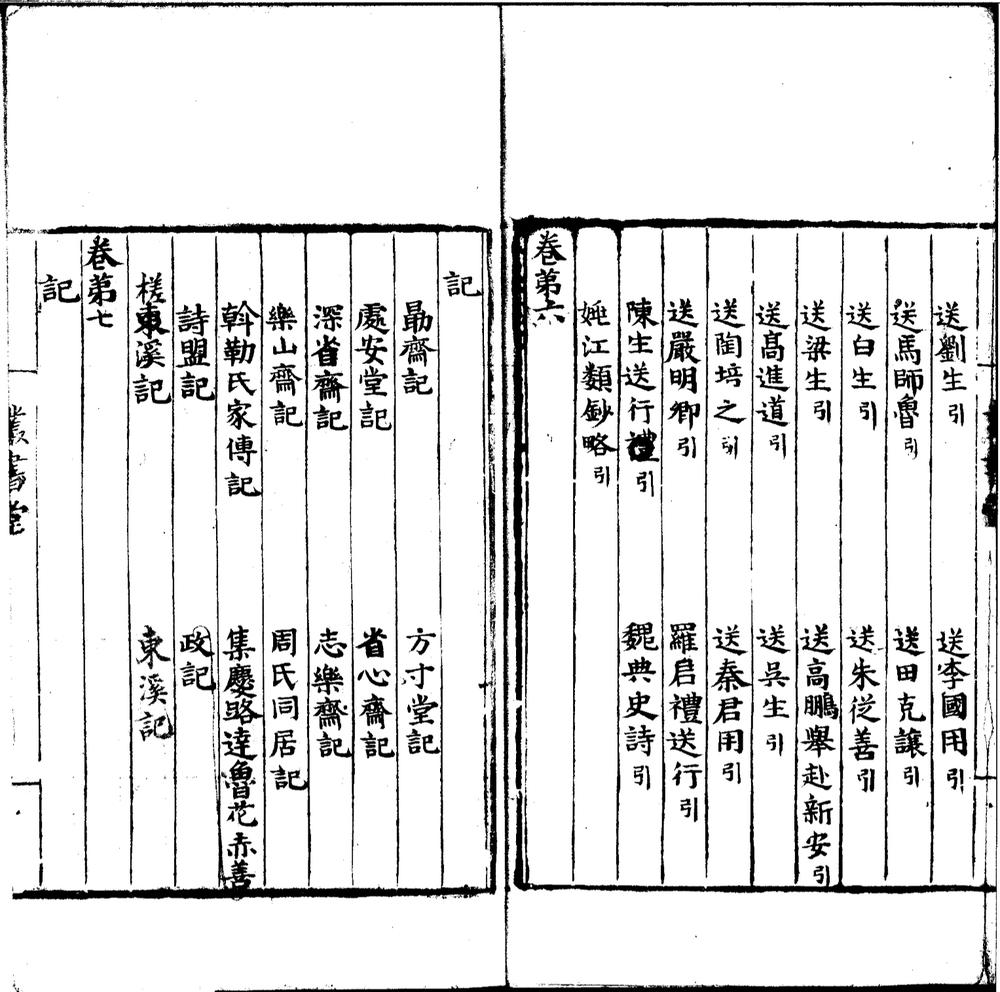 送劉生引　送李國用引
送馬師魯引　送田克讓引
送白生引　送朱從善引
送梁生引　送高鵬舉赴新安引
送高進道引　送吳生引
送陶培之引　送秦君用引
送嚴明卿引　羅啓禮送行引
陳生送行禮引　魏典史詩引
江類鈔略引
卷第六
記
勗齋記　方寸堂記
處安堂記　省心齋記
深省齋記　志樂齋記
樂山齋記　周氏同居記
斡勒氏家傳記　集慶路達魯花赤善
政記
詩盟記
槎溪記　東溪記
卷第七
記
叢書堂